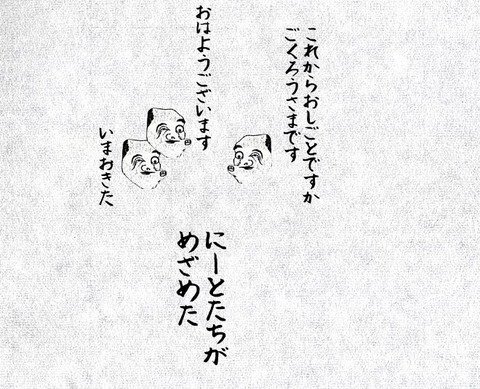 これからおしごとですか
ごくろうさまです
おはようございます
いまおきた
にーとたちが
めざめた